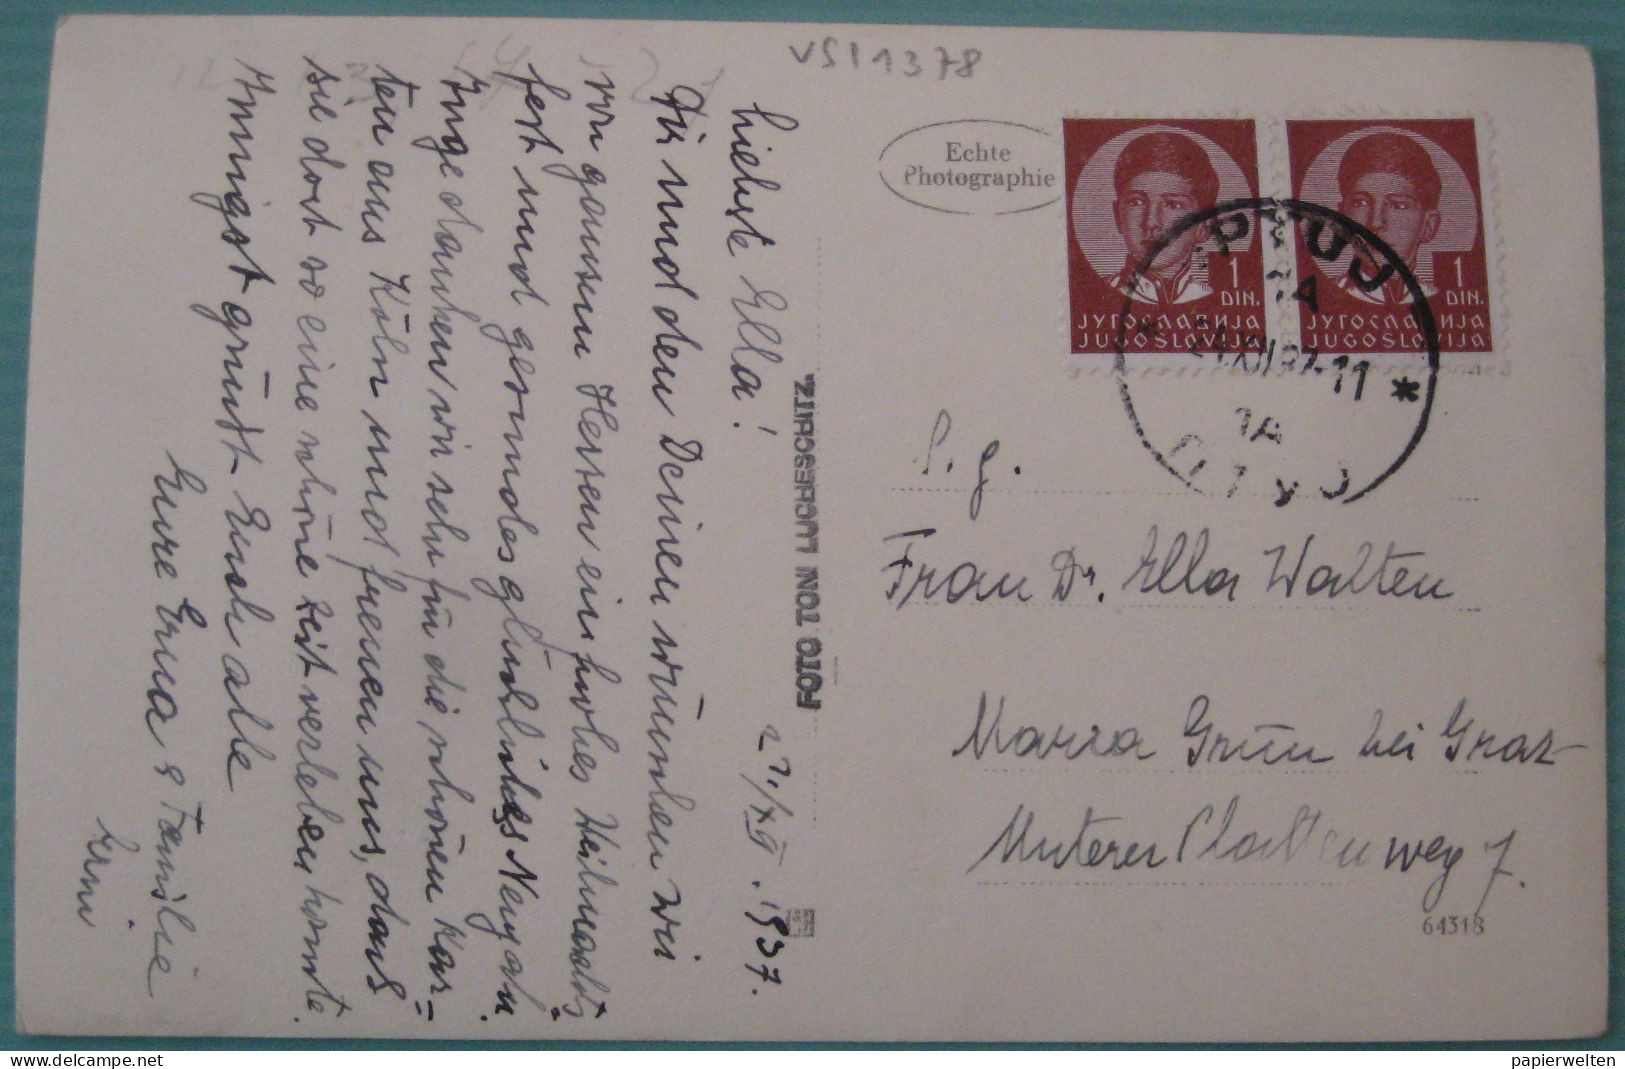 VS11378
Liebste Ella!
21./XII. 1937.
Dir und den Deinen wünschen wir
von ganzem Herzen ein frohes Weihnachts
fest und gesundes glückliches Neujahr.
Inge danken wir sehr für die schönen Kar-
ten aus Köln und freuen uns, dass
sie dort so eine schöne Zeit verleben konnte.
Innigst grüßt Euch alle
Eure Erna & Familie
Erni
FOTO TONI LUGRESCHITZ
Echte
Photographie
1
DIN.
ЈУГОСЛАВИЈА
JUGOSLAVIJA
1
DIN.
ЈУГОСЛАВИЈА
JUGOSLAVIJA
PTUJ
1A
24.XII.37-11
*
1A
S. g.
Frau Dr. Ella Walten
Maria Grün bei Graz
Unterer Plattenweg 7.
64318
papierwelten
www.delcampe.net